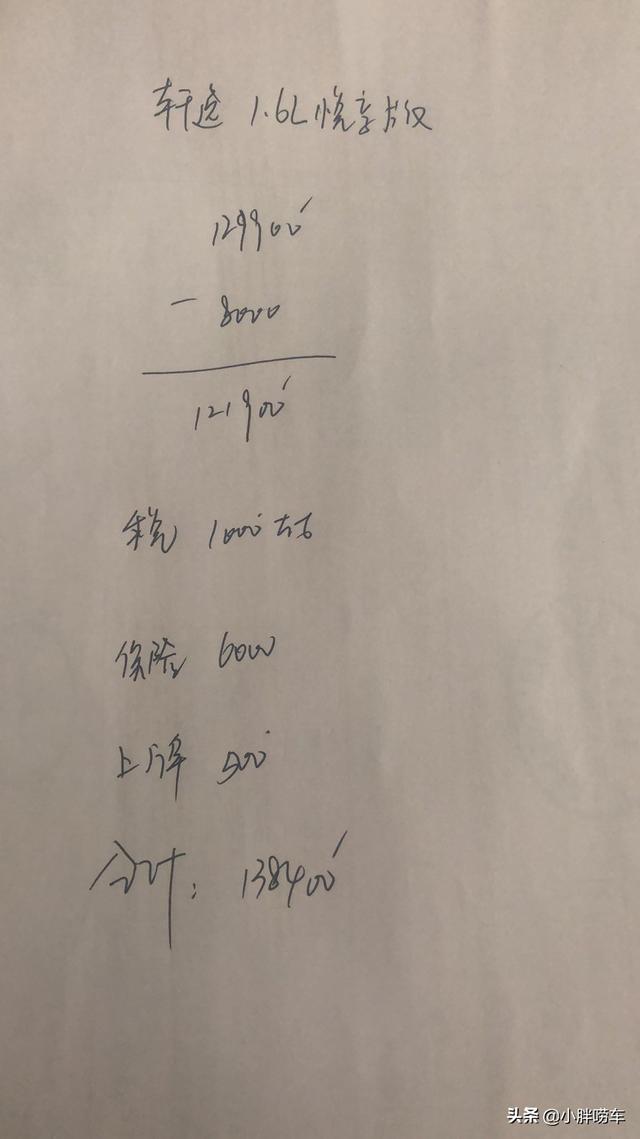 轩逸 1.6L悦享版
129900
- 8000
121900
税 10000左右
保险 6000
上牌 500
合计: 138400
头条 @小胖唠车